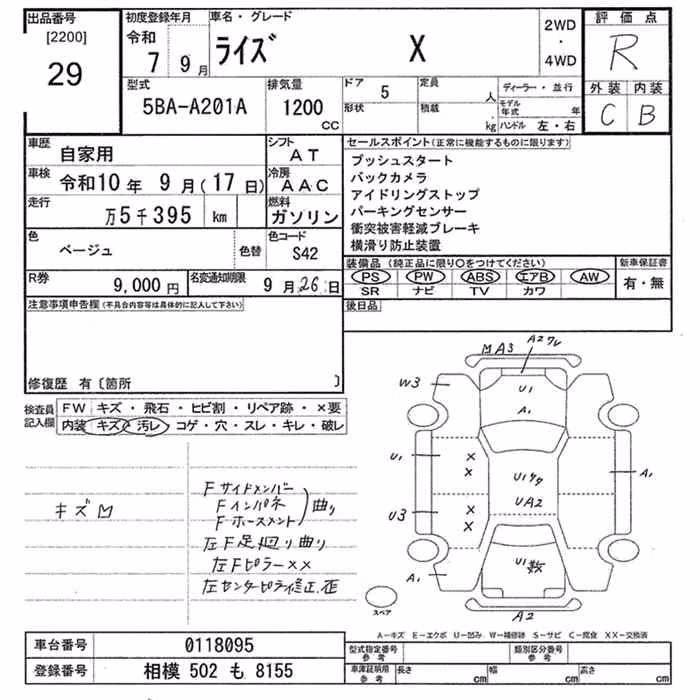 出品番号
[2200]
29
初度登録年月
令和
7 9月
車名・グレード
ライズ X
2WD
・
4WD
評価点
R
外装 内装
C B
型式
5BA-A201A
排気量
1200
CC
ドア 5
形状
定員
人
積載
kg
ディーラー・並行
モデル年式 年
ハンドル 左・右
車歴
自家用
シフト
AT
車検
令和10年 9月(17日)
冷房
AAC
走行
万5千395 km
燃料
ガソリン
色
ベージュ
色替
色コード
S42
R券
9,000円
名変通知期限
9月26日
セールスポイント(正常に機能するものに限ります)
プッシュスタート
バックカメラ
アイドリングストップ
パーキングセンサー
衝突被害軽減ブレーキ
横滑り防止装置
装備品(純正品に限り○をつけてください)
PS PW ABS エアB AW
SR ナビ TV カワ
新車保証書
有・無
後日品
注意事項申告欄(不具合内容等は具体的に記入して下さい)
修復歴 有〔箇所 〕
検査員
記入欄
FW キズ・飛石・ヒビ割・リペア跡・×要
内装 キズ・汚レ・コゲ・穴・スレ・キレ・破レ
キズM
Fサイドメンバー
Fインパネ 曲り
Fホースメント
左F足廻り曲り
左Fピラー××
左センターピラー修正、歪
MA3
A2ワレ
W3
U1
A1
U1
×
×
U1
UA2
A1
U3
×
×
A1
U1数
A2
スペア
A-キズ E-エクボ U-凹み W-補修跡 S-サビ C-腐食 XX-交換済
車台番号
0118095
登録番号
相模 502 も 8155
型式指定番号
参考
類別区分番号
参考
車庫証明用
参考
長さ cm
幅 cm
高さ cm